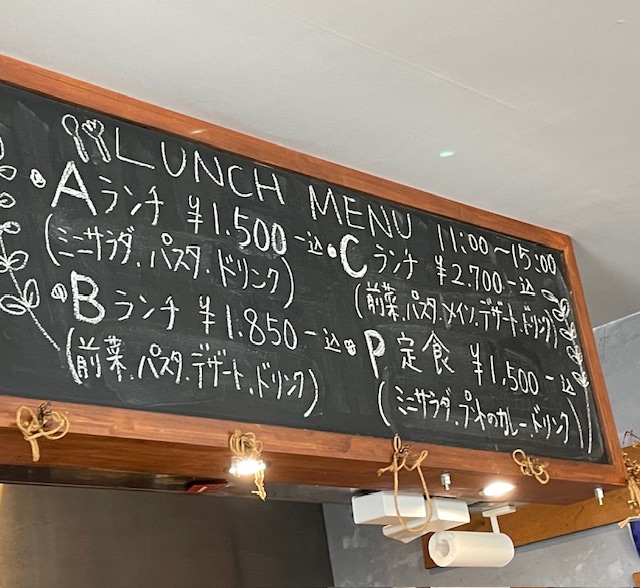 LUNCH MENU 11:00～15:00
Aランチ ¥1.500-込
(ミニサラダ.パスタ.ドリンク)
Bランチ ¥1.850-込
(前菜.パスタ.デザート.ドリンク)
Cランチ ¥2.700-込
(前菜.パスタ.メイン.デザート.ドリンク)
P定食 ¥1,500-込
(ミニサラダ.カレー.ドリンク)